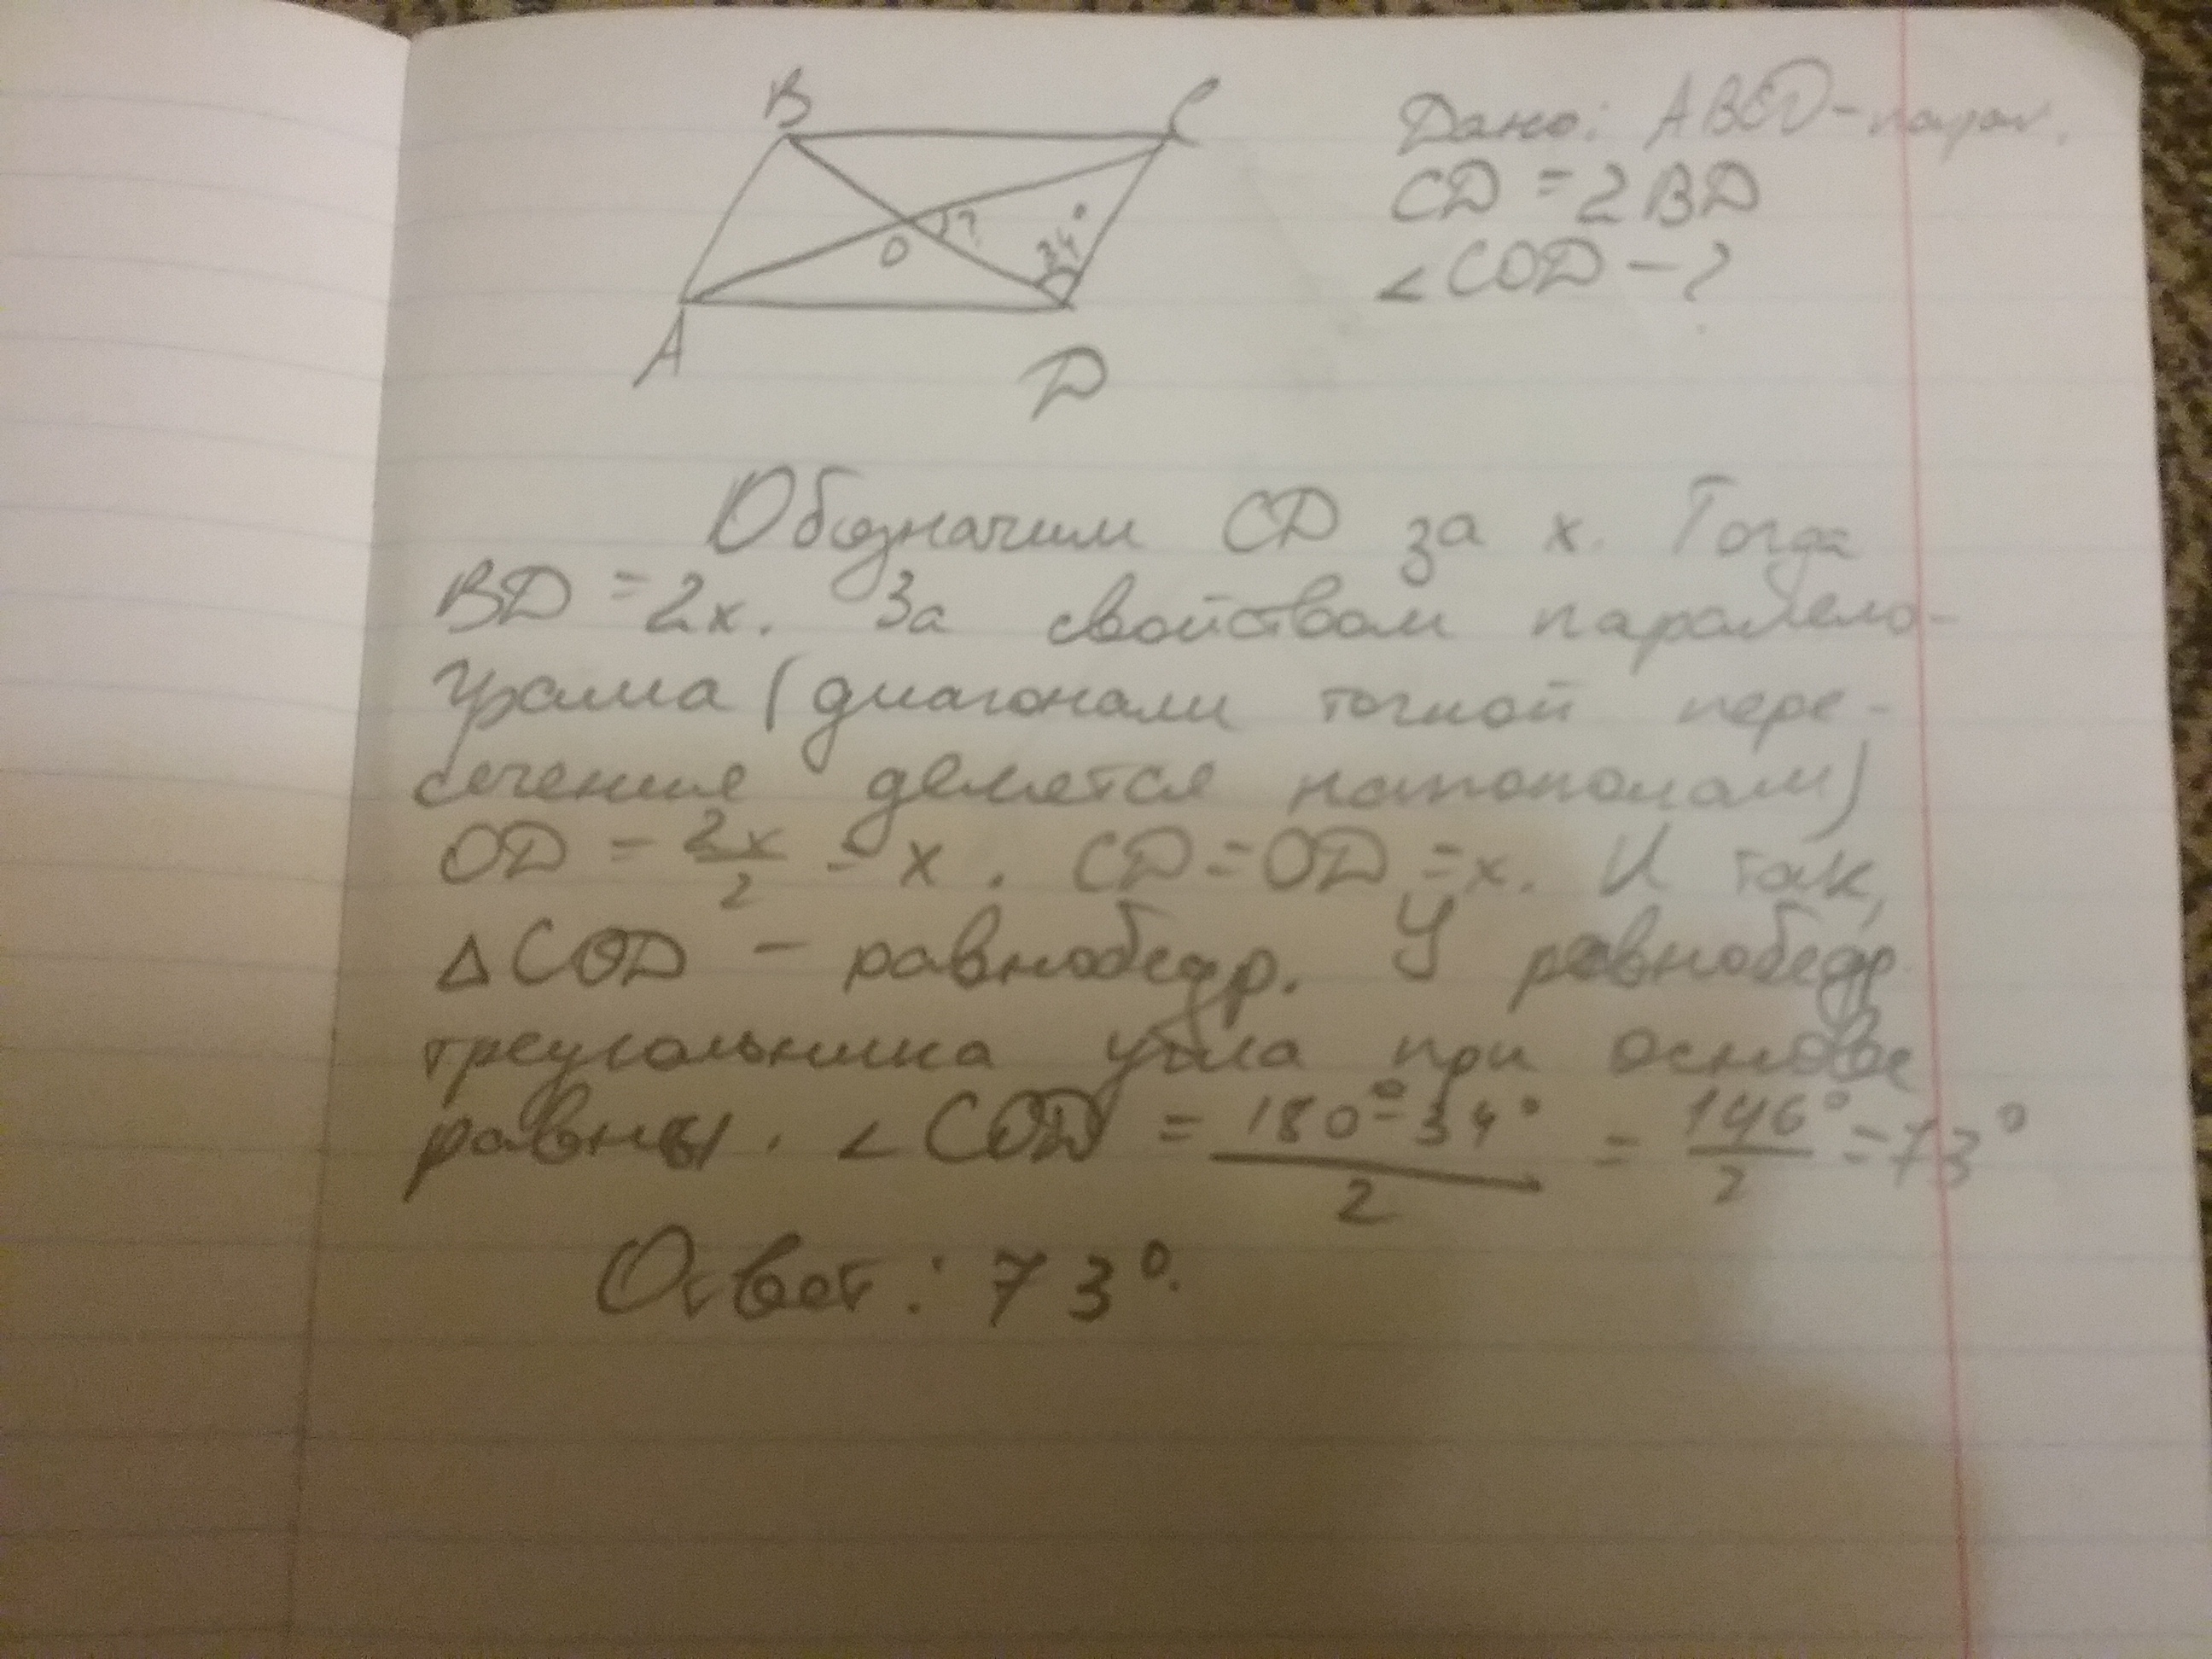 B C
O ? 34°
A D
Дано: ABCD - парал.
CD = 2BD
∠COD - ?
Обозначим CD за x. Тогда
BD = 2x. За свойством паралело-
грама (диагонали точкой пере-
сечение делятся напополам)
OD = 2x/2 = x. CD = OD = x. И так,
△COD - равнобедр. У равнобедр.
треугольника угла при основе
равны. ∠COD = 180°-34°/2 = 146°/2 = 73°
Ответ: 73°.